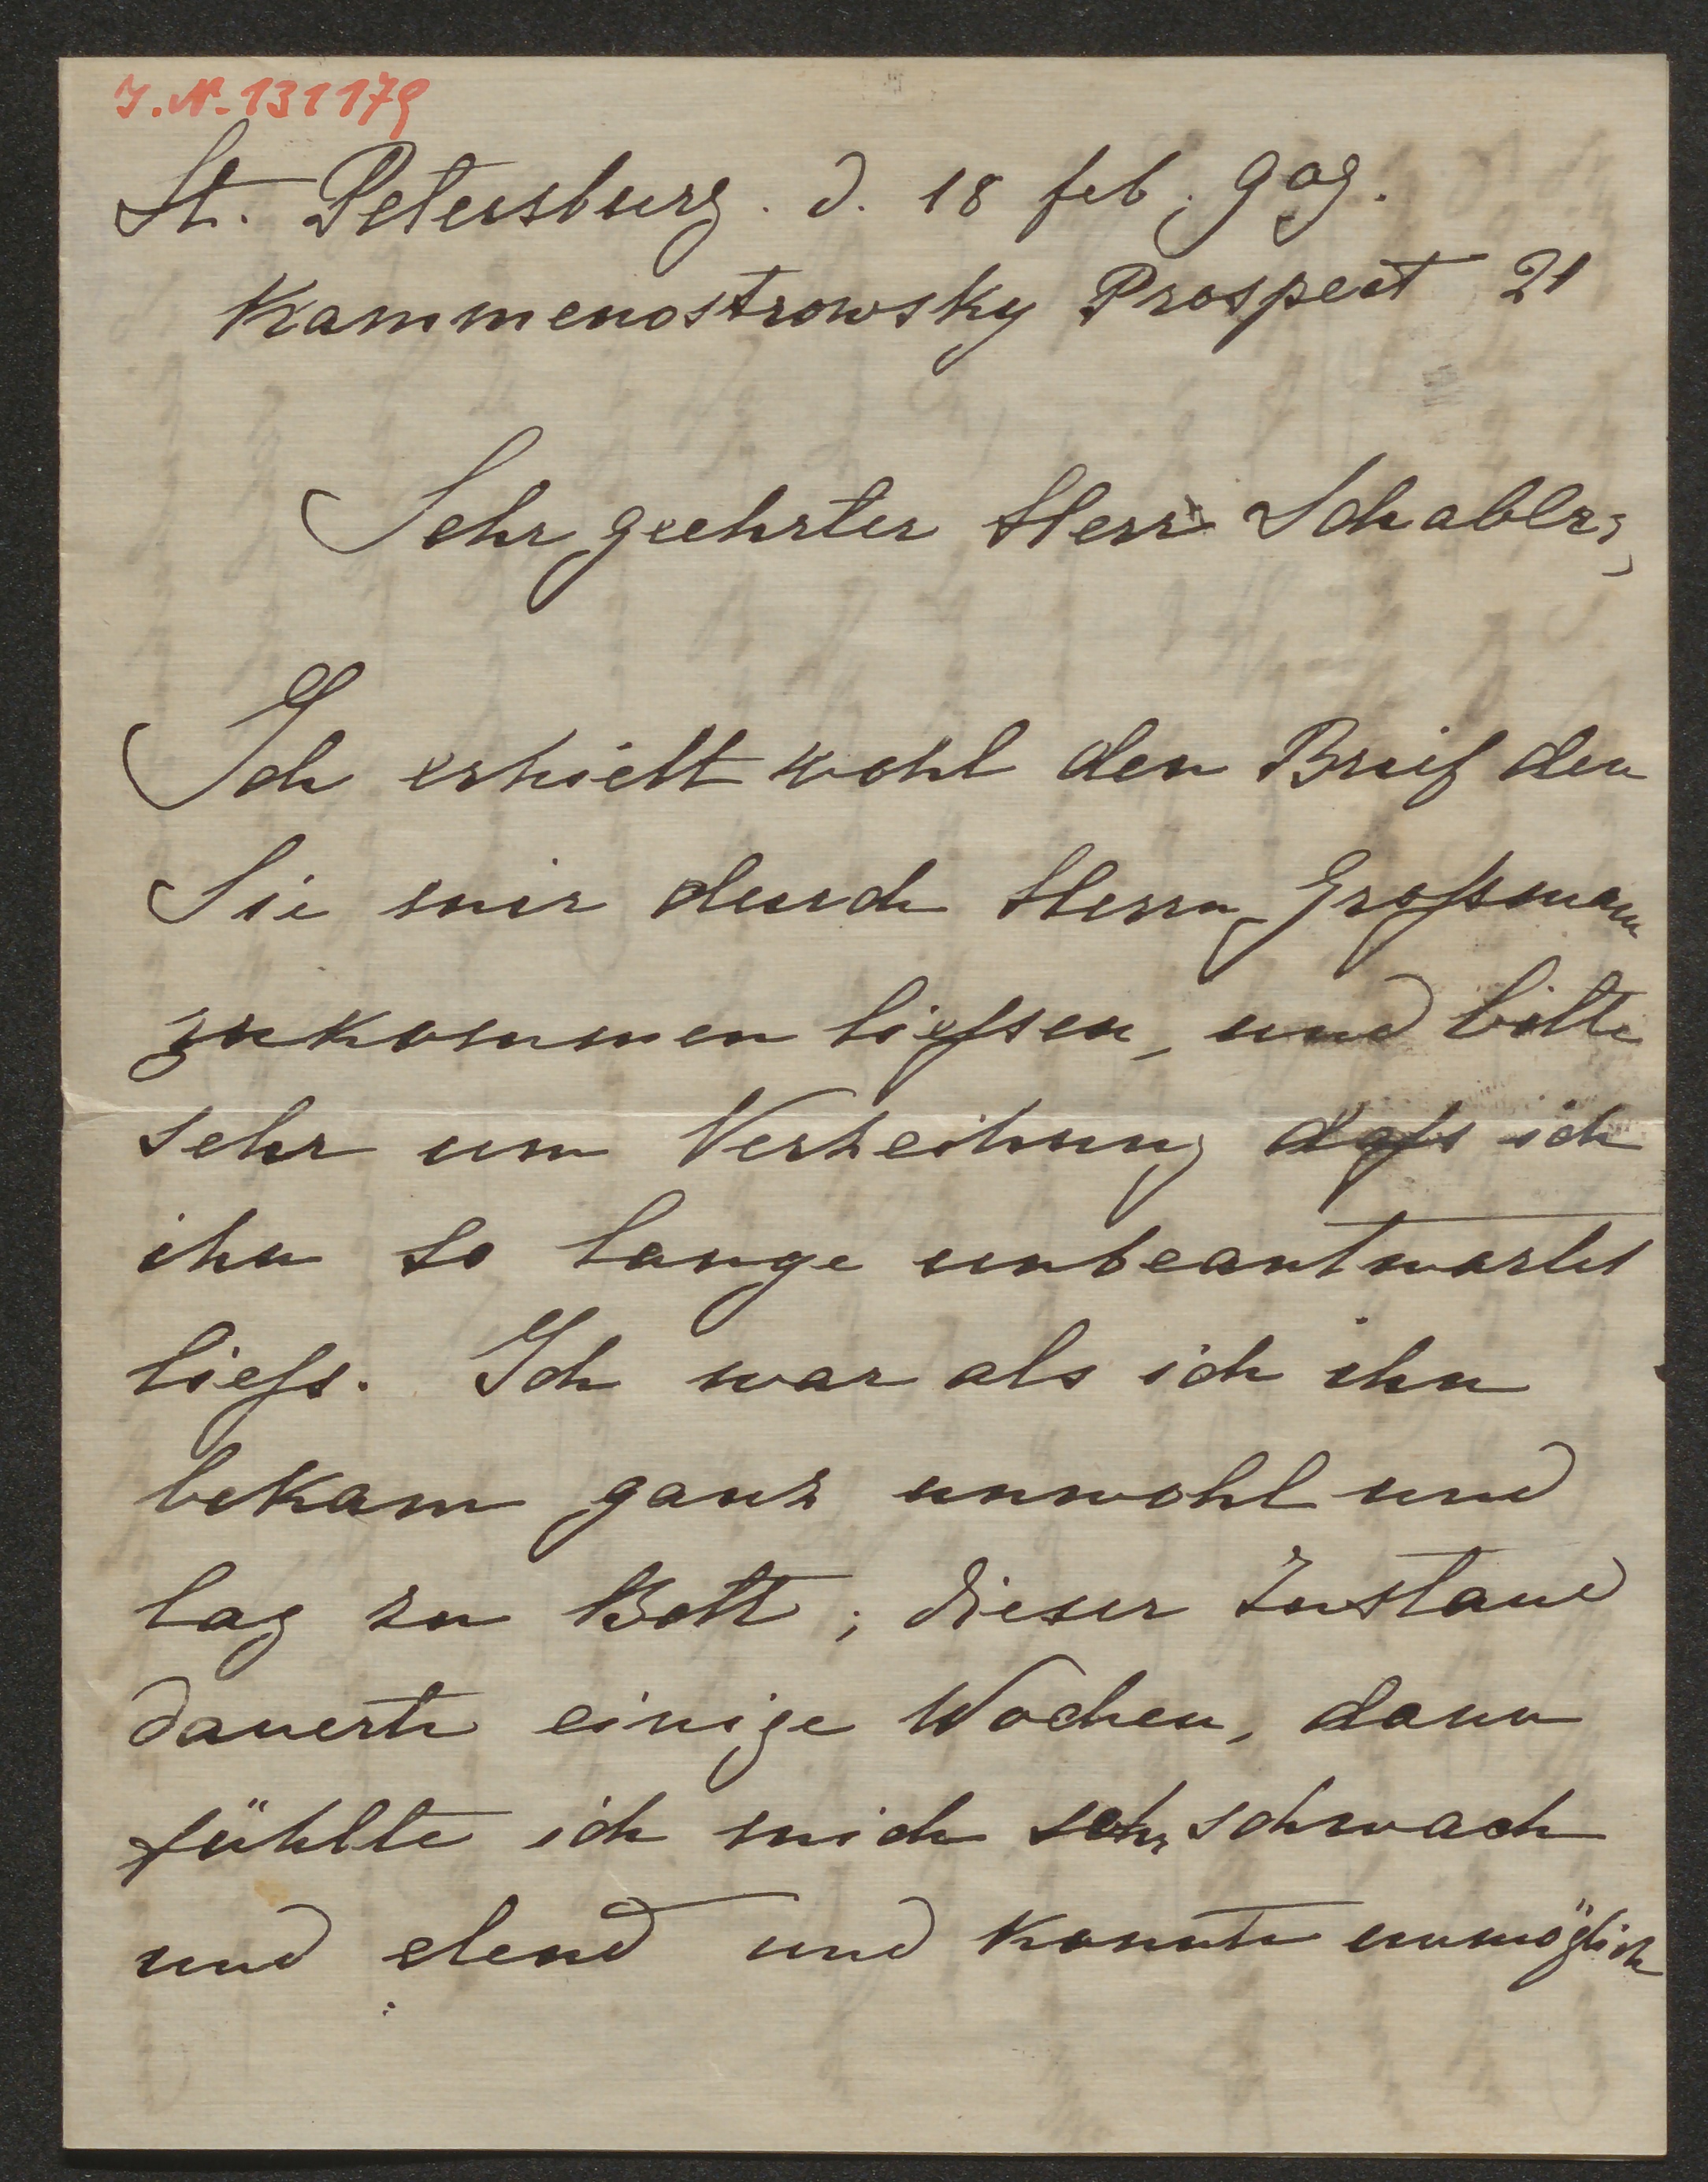 I.N. 131179
St. Petersburg. d. 18 feb. 909.
Kammenostrowsky Prospect 21
Sehr geehrter Herr Schabler,
Ich erhielt wohl den Brief den
Sie mir durch Herrn Grossmann
zukommen liessen, und bitte
sehr um Verzeihung dass ich
ihn so lange unbeantwortet
liess. Ich war als ich ihn
bekam ganz unwohl und
lag zu Bett; dieser Zustand
dauerte einige Wochen, dann
fühlte ich mich sehr schwach
und elend und konnte unmöglich